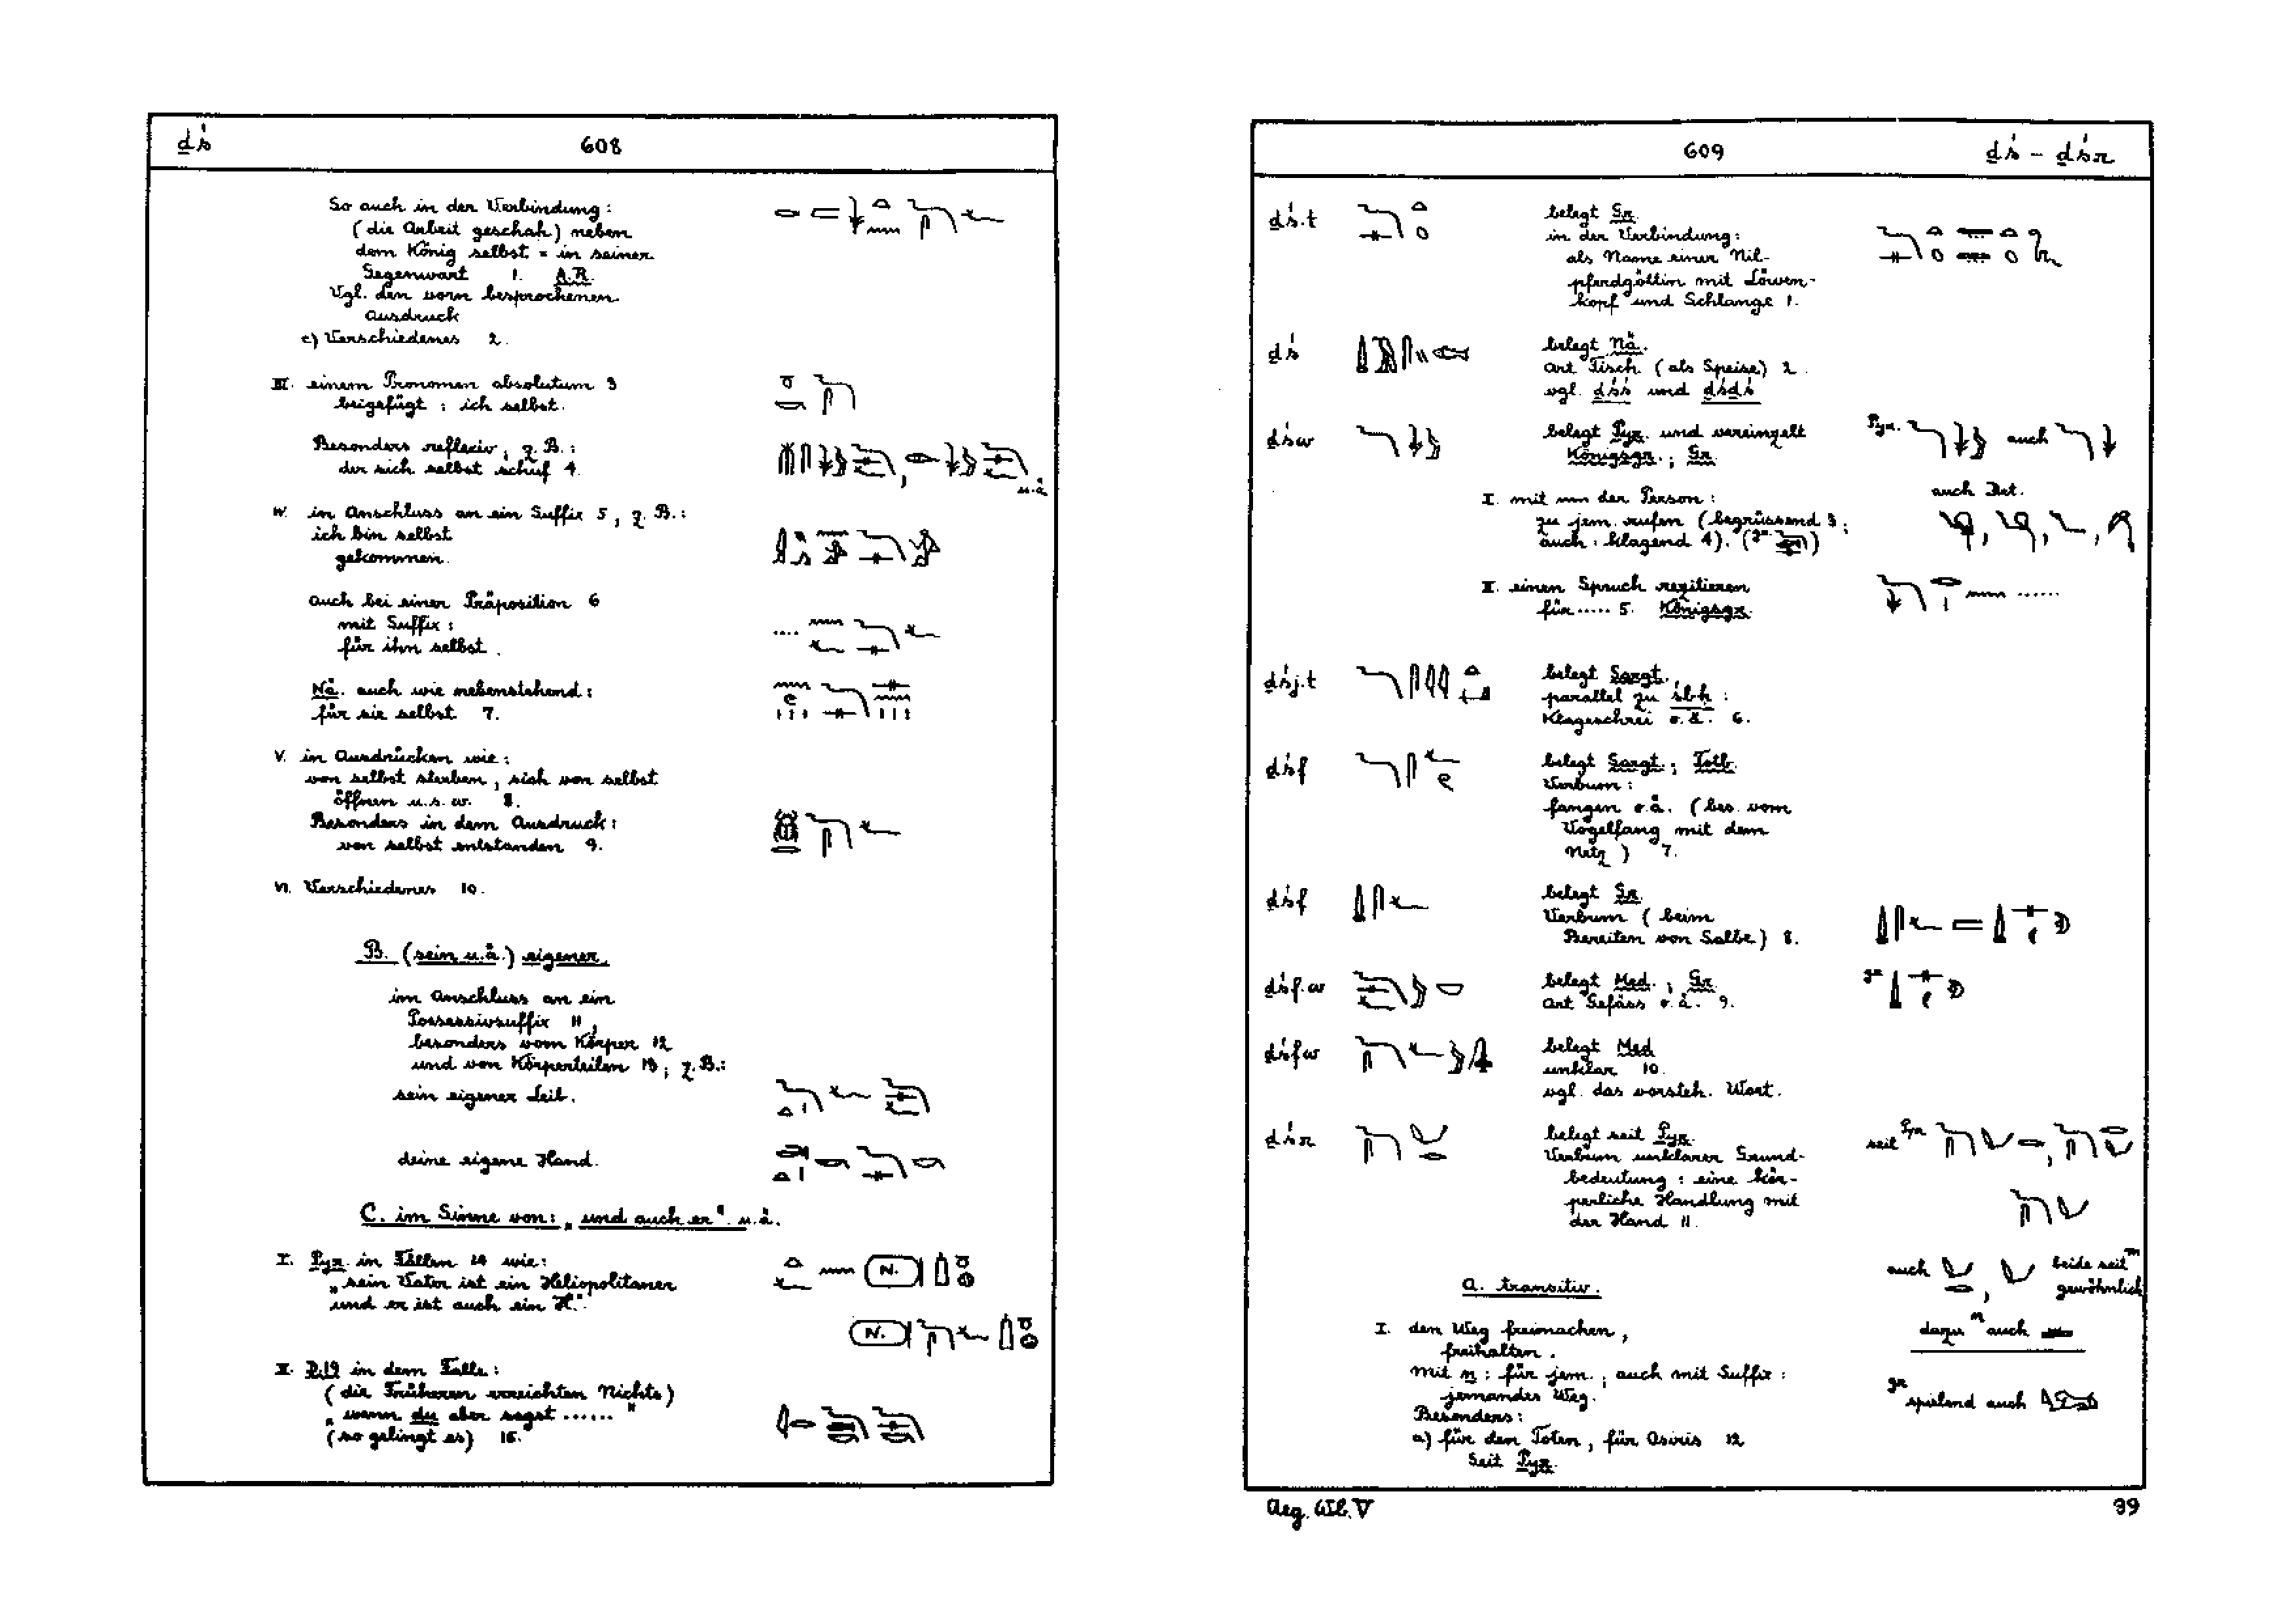 ḏś
608
So auch in der Verbindung:
(die Arbeit geschah) neben
dem König selbst = in seiner
Gegenwart 1. A.R.
Vgl. den vorn besprochenen
Ausdruck
c) Verschiedenes 2.
III. einem Pronomen absolutum 3
beigefügt: ich selbst.
Besonders reflexiv, z. B.:
der sich selbst schuf 4.
u.ä.
IV. in Anschluss an ein Suffix 5, z. B.:
ich bin selbst
gekommen.
auch bei einer Präposition 6
mit Suffix:
für ihn selbst.
Nä. auch wie nebenstehend:
für sie selbst 7.
V. in Ausdrücken wie:
von selbst sterben, sich von selbst
öffnen u.s.w. 8.
Besonders in dem Ausdruck:
von selbst entstanden 9.
VI. Verschiedenes 10.
B. (sein u.ä.) eigener.
im Anschluss an ein
Possessivsuffix 11,
besonders vom Körper 12
und von Körperteilen 13, z. B.:
sein eigener Leib.
deine eigene Hand.
C. im Sinne von: „und auch er“ u.ä.
I. Pyr. in Fällen 14 wie:
„sein Vater ist ein Heliopolitaner
N.
und er ist auch ein H.“
N.
II. D.19 in dem Falle:
(die Früheren erreichten Nichts)
„wenn du aber sagst ......“
(so gelingt es) 15.
609
ḏś - ḏśr
ḏś.t
belegt Gr.
in der Verbindung:
als Name einer Nil-
pferdgöttin mit Löwen-
kopf und Schlange 1.
ḏś
belegt Nä.
Art Fisch (als Speise) 2.
vgl. ḏśś und ḏśḏś
ḏśw
belegt Pyr. und vereinzelt
Königsgr.; Gr.
Pyr.
auch
I. mit acc der Person:
zu jem. rufen (begrüssend 3;
auch: klagend 4).
auch Det.
II. einen Spruch rezitieren
für ..... 5. Königsgr.
ḏśj.t
belegt Sargt.
parallel zu śbḥ:
Klageschrei o.ä. 6.
ḏśf
belegt Sargt.; Totb.
Verbum:
fangen o.ä. (bes. vom
Vogelfang mit dem
Netz) 7.
ḏśf
belegt Gr.
Verbum (beim
Bereiten von Salbe) 8.
ḏśf.w
belegt Med.; Gr.
Art Gefäss o.ä. 9.
gr
ḏśfw
belegt Med
unklar 10.
vgl. das vorsteh. Wort.
ḏśr
belegt seit Pyr.
Verbum unklarer Grund-
bedeutung: eine kör-
perliche Handlung mit
der Hand 11.
seit Pyr
A. transitiv.
auch
beide seit m
gewöhnlich
I. den Weg freimachen,
freihalten.
dazu n auch
mit n: für jem.; auch mit Suffix:
jemandes Weg.
gr
spielend auch
Besonders:
a) für den Toten, für Osiris 12
Seit Pyr.
Aeg. Wb. V
39